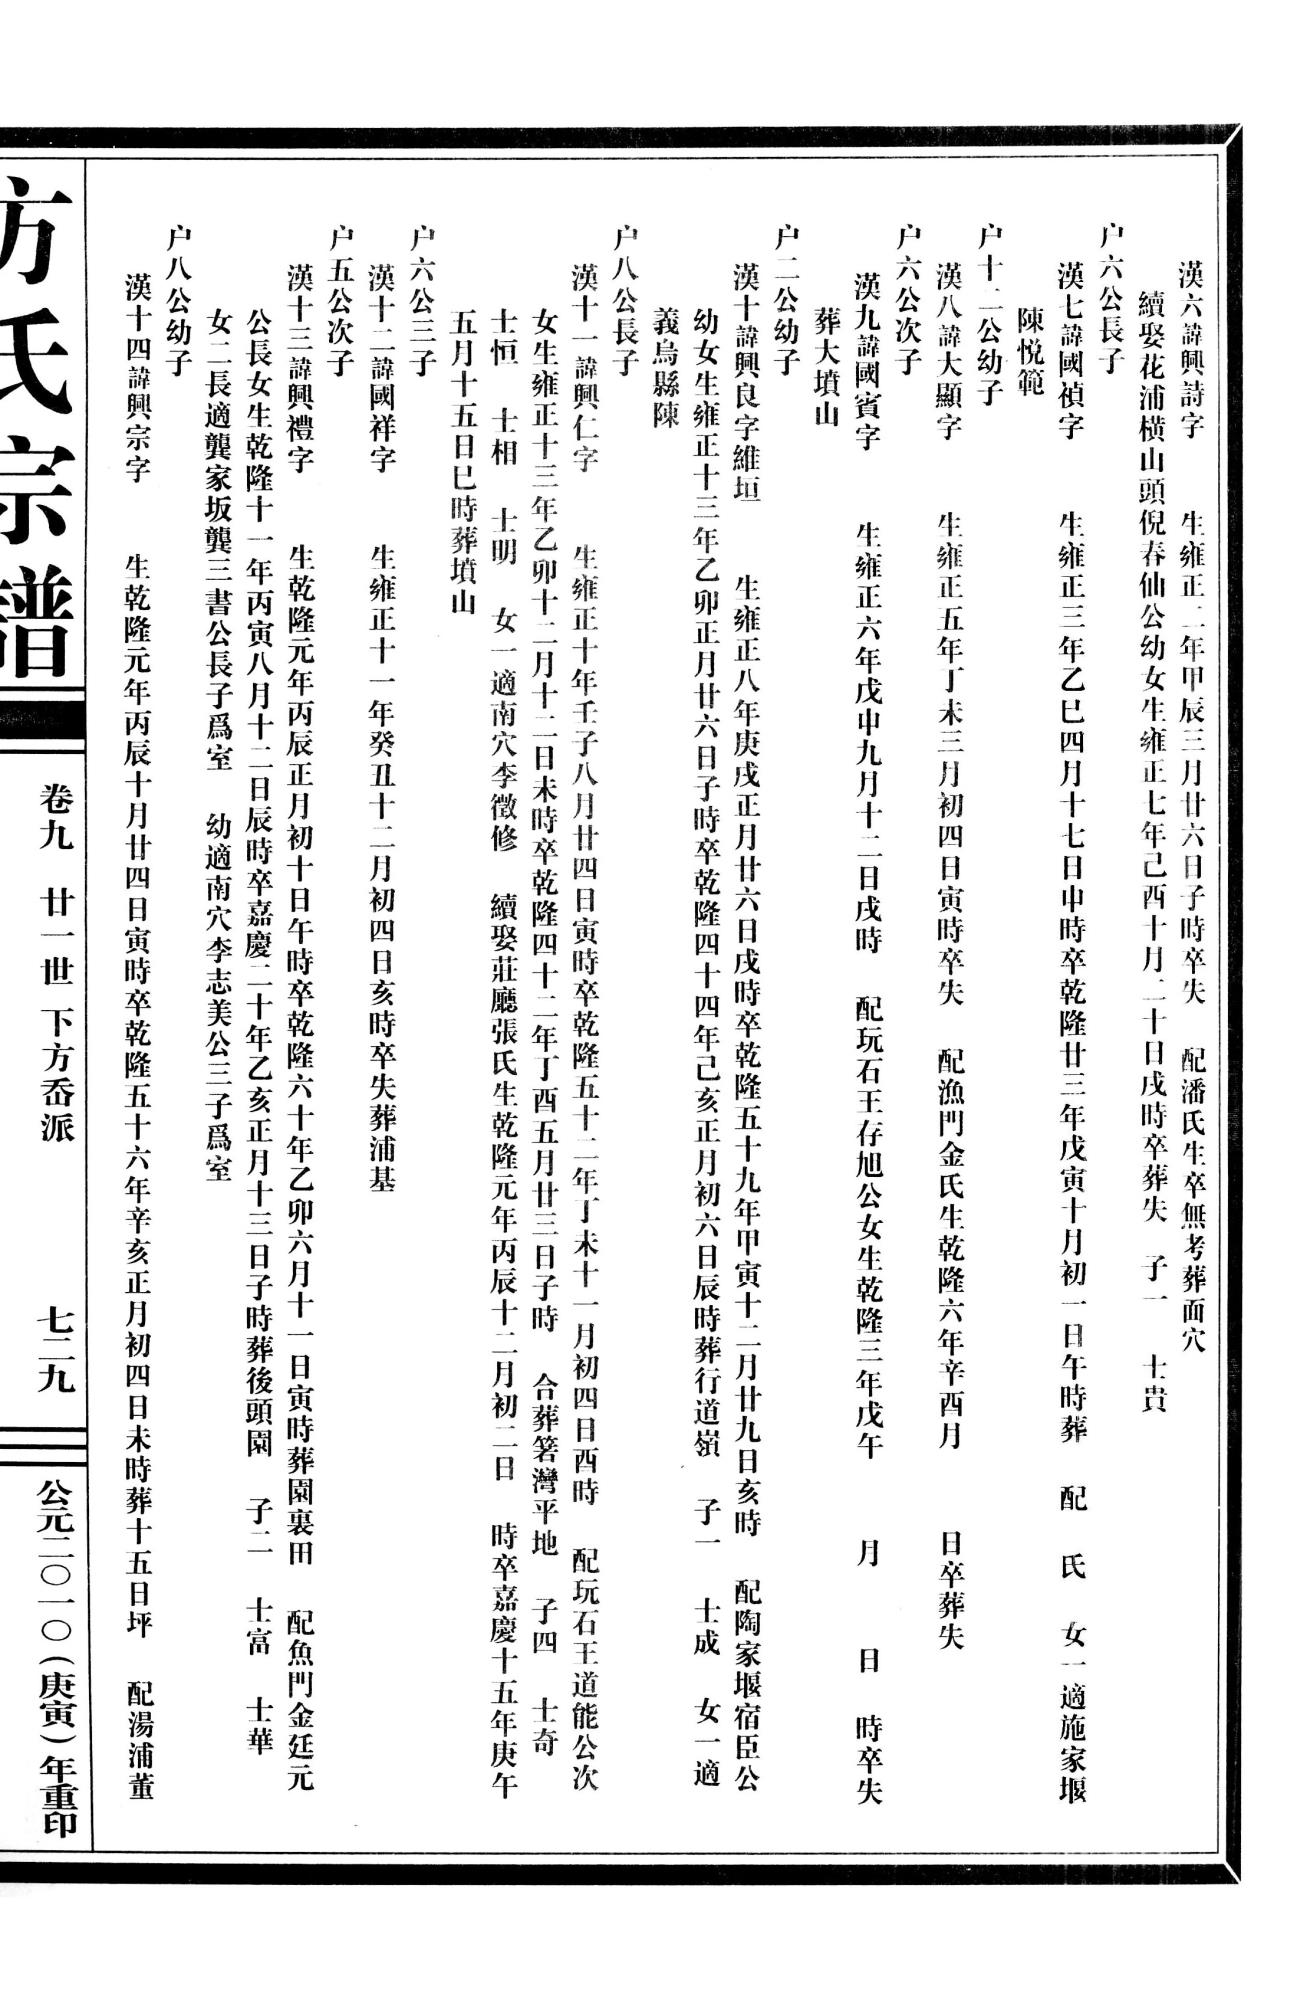 漢六諱興詩字 生雍正二年甲辰三月廿六日子時卒失 配潘氏生卒無考葬面穴
續娶花浦横山頭倪春仙公幼女生雍正七年己酉十月二十日戌時卒葬失 子一 士貴
户六公長子
漢七諱國禎字 生雍正三年乙巳四月十七日申時卒乾隆廿三年戊寅十月初一日午時葬 配 氏 女一適施家堰
陳悦範
户十二公幼子
漢八諱大顯字 生雍正五年丁未三月初四日寅時卒失 配漁門金氏生乾隆六年辛酉月 日卒葬失
户六公次子
漢九諱國賓字 生雍正六年戊申九月十二日戌時 配玩石王存旭公女生乾隆三年戊午 月 日 時卒失
葬大墳山
户二公幼子
漢十諱興良字維垣 生雍正八年庚戌正月廿六日戌時卒乾隆五十九年甲寅十二月廿九日亥時 配陶家堰宿臣公
幼女生雍正十三年乙卯正月廿六日子時卒乾隆四十四年己亥正月初六日辰時葬行道嶺 子一 士成 女一適
義烏縣陳
户八公長子
漢十一諱興仁字 生雍正十年壬子八月廿四日寅時卒乾隆五十二年丁未十一月初四日酉時 配玩石王道能公次
女生雍正十三年乙卯十二月十二日未時卒乾隆四十二年丁酉五月廿三日子時 合葬箬灣平地 子四 士奇
士恒 士相 士明 女一適南穴李徵修 續娶莊廳張氏生乾隆元年丙辰十二月初二日 時卒嘉慶十五年庚午
五月十五日巳時葬墳山
户六公三子
漢十二諱國祥字 生雍正十一年癸丑十二月初四日亥時卒失葬浦基
户五公次子
漢十三諱興禮字 生乾隆元年丙辰正月初十日午時卒乾隆六十年乙卯六月十一日寅時葬園裏田 配魚門金廷元
公長女生乾隆十一年丙寅八月十二日辰時卒嘉慶二十年乙亥正月十三日子時葬後頭園 子二 士富 士華
女二長適龔家坂龔三書公長子爲室 幼適南穴李志美公三子爲室
户八公幼子
漢十四諱興宗字 生乾隆元年丙辰十月廿四日寅時卒乾隆五十六年辛亥正月初四日未時葬十五日坪 配湯浦董
方氏宗譜
卷九 廿一世 下方岙派 七二九
公元二〇一〇(庚寅)年重印